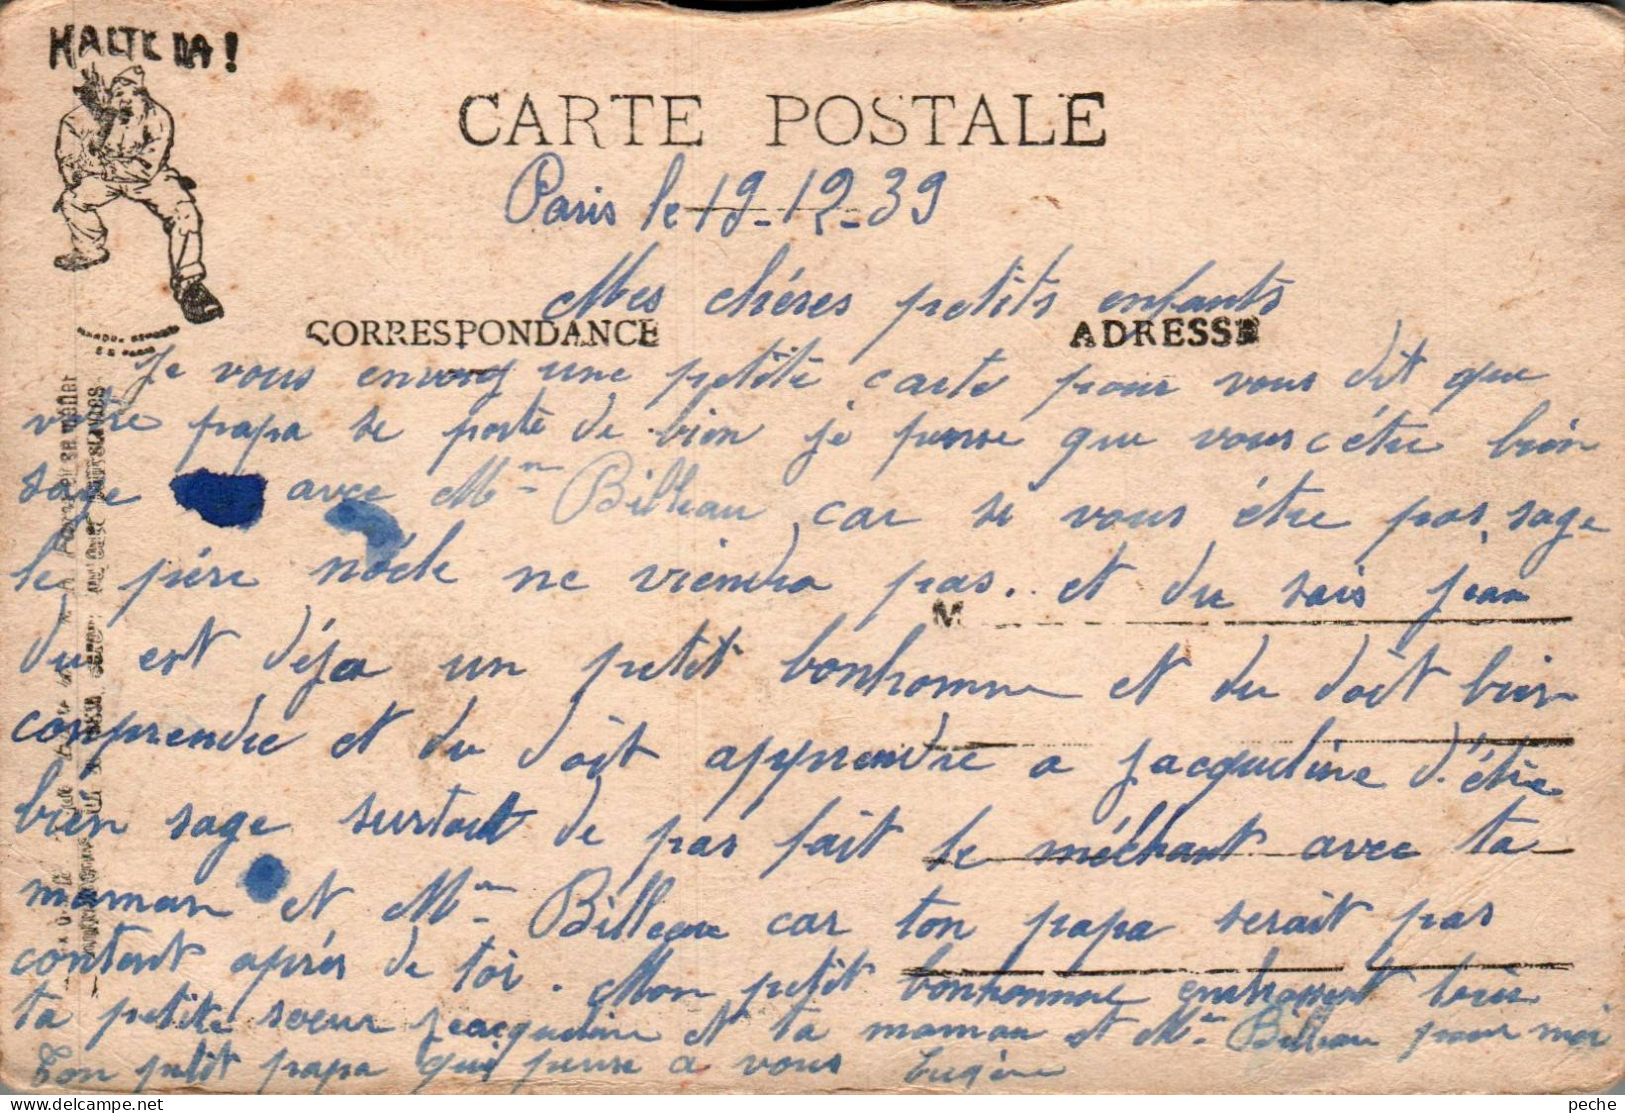 HALTE LA!
CARTE POSTALE
Paris le 19-12-39
Mes chéres petits enfants
CORRESPONDANCE
ADRESSE
Je vous envoy une petite carte pour vous dit que
votre papa se porte de bien je pense que vous cétre bien
sage avec Mm Billeau car si vous étre pas sage
le pére nöele ne viendra pas.. et du sais jean
M
du est déja un petit bonhomme et du doit bien
comprendre et du doit apprendre a jacqueline d'étre
bien sage surtout de pas fait le méchant avec ta
maman et Mm Billeau car ton papa serait pas
content aprés de toi. Mon petit bonhomme embrasse bien
ta petite soeur jeacqueline et ta maman et Mm Billeau pour moi
Ton petit papa qui pense a vous Eugène
peche